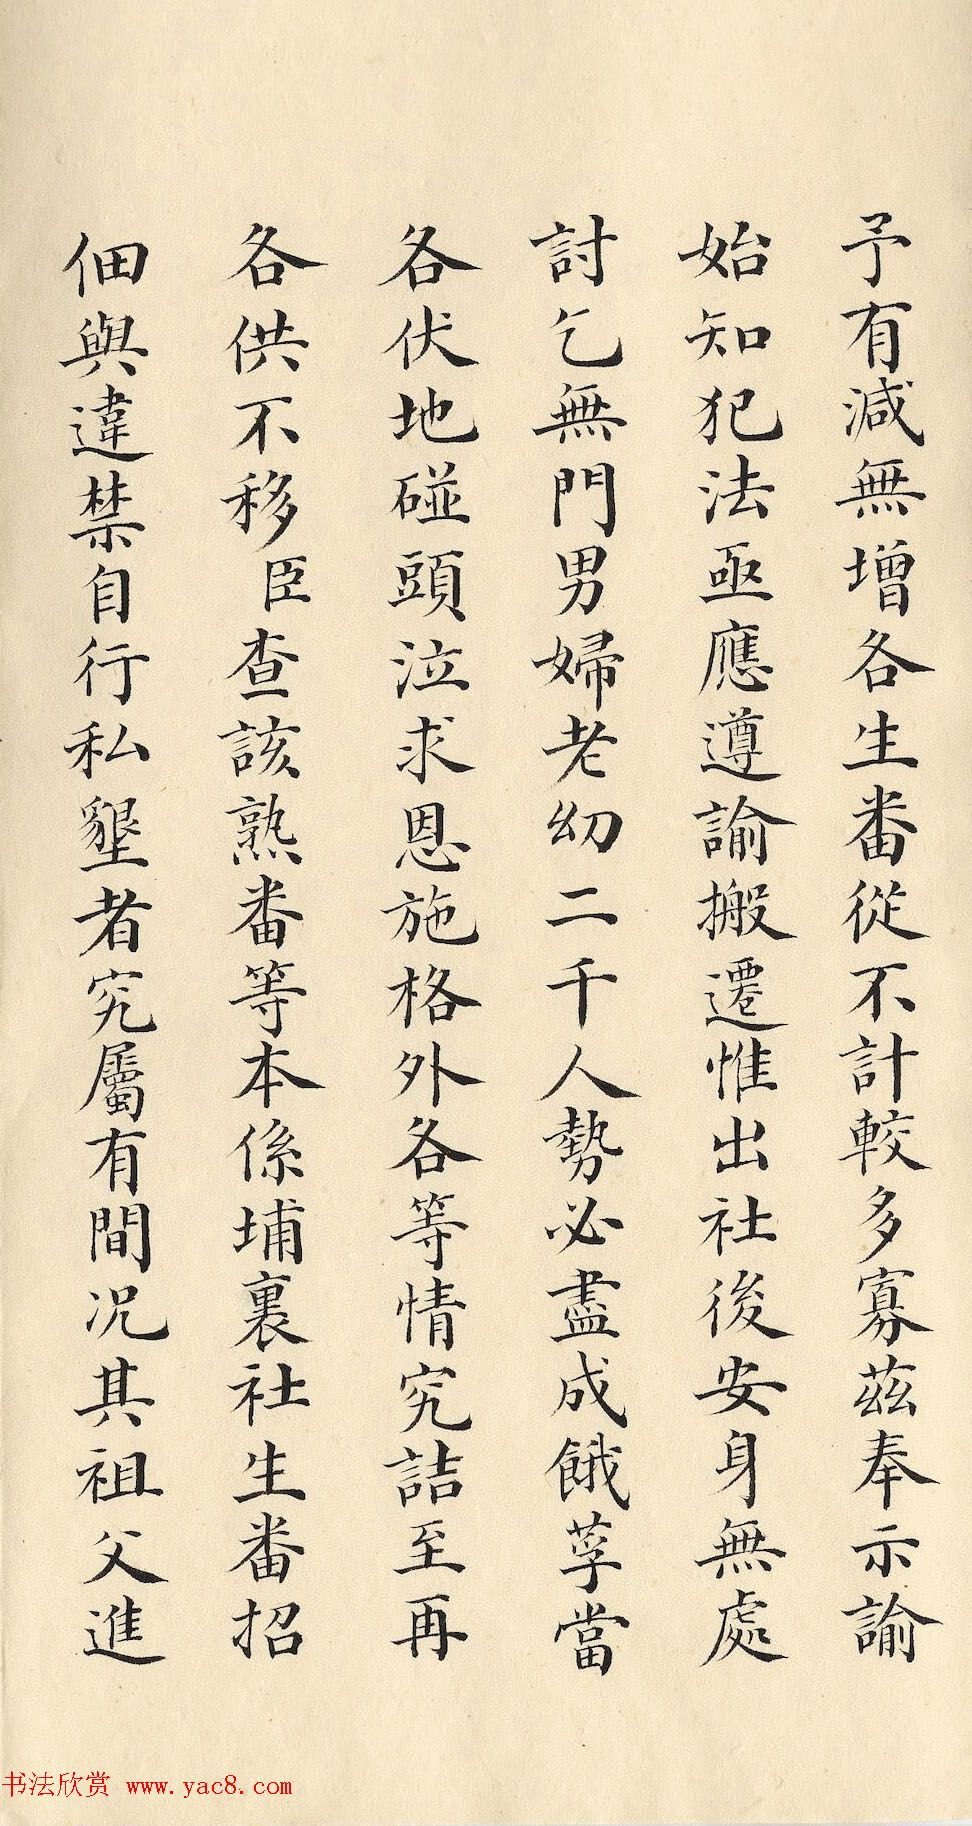 予有減無增各生番從不計較多寡茲奉示諭
始知犯法亟應遵諭搬遷惟出社後安身無處
討乞無門男婦老幼二千人勢必盡成餓莩當
各伏地碰頭泣求恩施格外各等情究詰至再
各供不移臣查該熟番等本係埔裏社生番招
佃與違禁自行私墾者究屬有間況其祖父進
书法欣赏 www.yac8.com